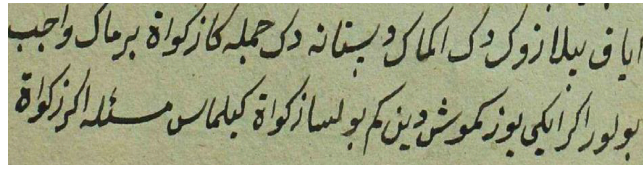 ایاق بیلازوک دک الماک دیستانه دک جمله کا زکواة برماک واجب
بولور اکر ایکی یوز کموش دین کم بولسا زکواة کیلماس مسئله اکر زکواة